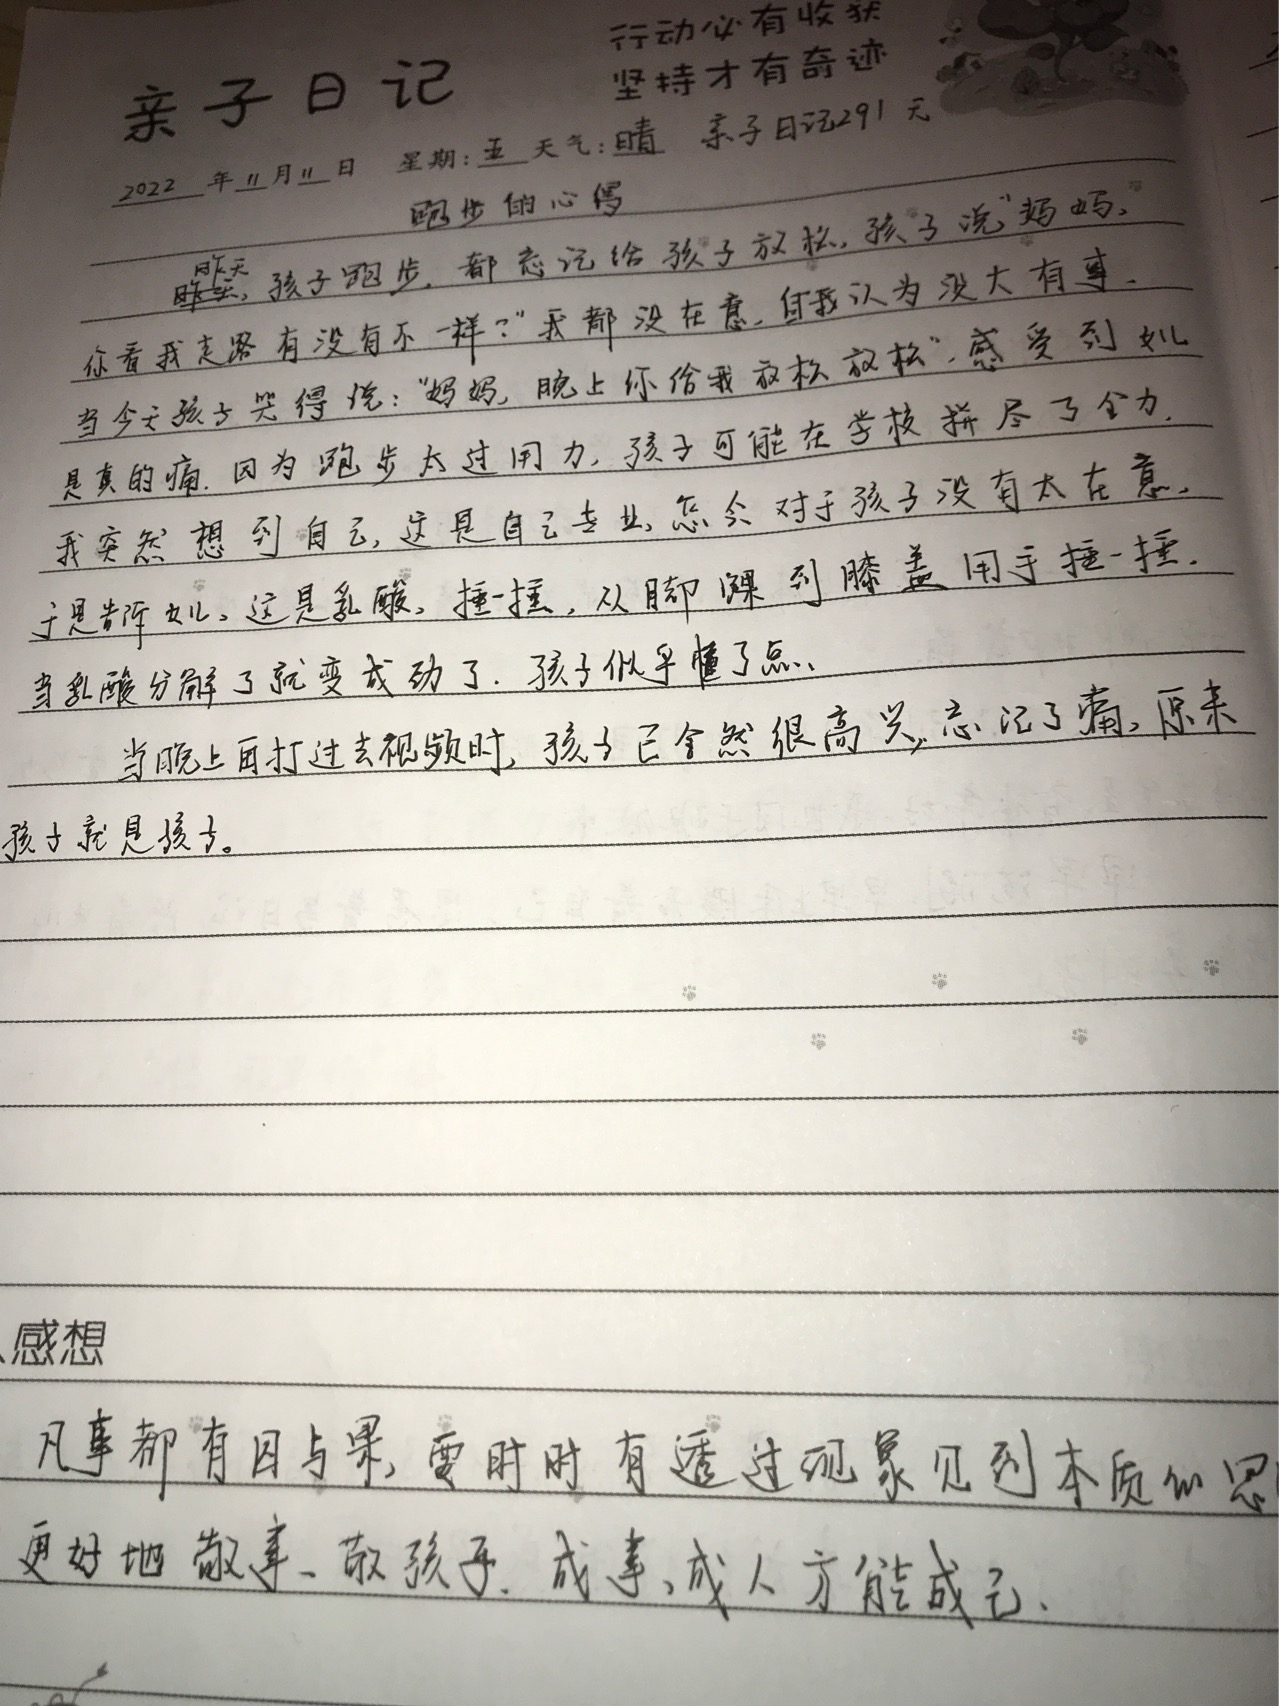 行动必有收获
坚持才有奇迹
亲子日记
2022年11月11日 星期:五 天气:晴 亲子日记291天
跑步的心得
昨天,孩子跑步,都忘记给孩子放松,孩子说"妈妈,
你看我走路有没有不一样?"我都没在意,自我认为没大有事.
当今天孩子哭得说:"妈妈,晚上你给我放松放松",感受到女儿
是真的痛.因为跑步太过用力,孩子可能在学校拼尽了全力.
我突然想到自己,这是自己专业,怎会对于孩子没有太在意,
于是告诉女儿,这是乳酸,捶一捶,从脚踝到膝盖用手捶一捶.
当乳酸分解了就变成劲了.孩子似乎懂了点.
当晚上再打过去视频时,孩子已全然很高兴,忘记了痛,原来
孩子就是孩子。
感想
凡事都有因与果,需时时有透过现象见到本质的思
更好地敬事、敬孩子.成事,成人方能成己.